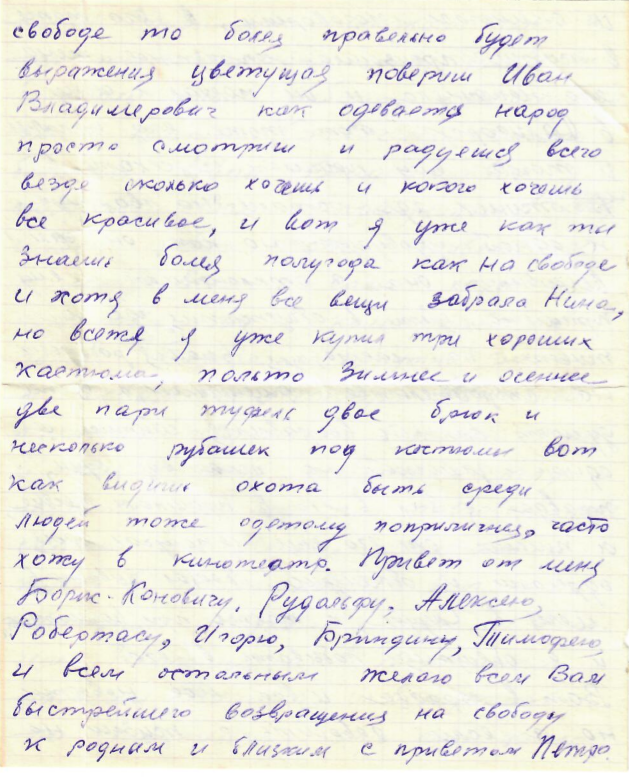 свободе то болея правельно будет
выражения цветущая повериш Иван
Владимерович как одевается народ
просто смотриш и радуешся всего
везде сколько хочешь и кокого хочешь
все красивое, и вот я уже как ты
знаешь болея полугода как на свободе
и хотя в меня все вещи забрала Нина,
но всетже я уже купил три хороших
кастюма, пальто зимнее и осеннее
две пари туфель двое брюк и
несколько рубашек под костюмы вот
как видишь охота быть среди
людей тоже одетому поприличнея, часто
хожу в кинотеатр. Привет от меня
Рудольфу, Алексею,
Робертасу, Игорю, Тимофею,
и всем остальным желаю всем Вам
быстрейшего возвращения на свободу
к родным и близким с приветом Пётр.